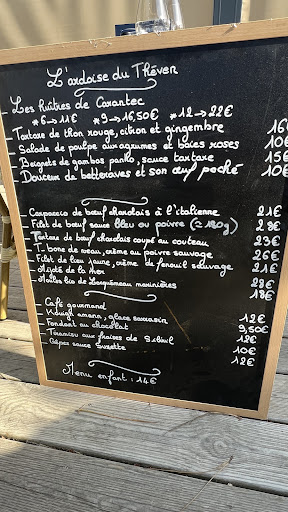 L'ardoise du Théven
_ Les huîtres de Carantec
*6→11€ *9→16,50€ *12→22€
_ Tartare de thon rouge, citron et gingembre 16
_ Salade de poulpe aux agrumes et baies roses 10€
_ Beignets de gambas panko, sauce tartare 15€
_ Douceur de betteraves et son œuf poché 10€
_ Carpaccio de bœuf charolais à l'italienne 21€
_ Filet de bœuf sauce bleu ou poivre (≃180g) 28€
_ Tartare de bœuf charolais coupé au couteau 23€
_ T. bone de veau, crème au poivre sauvage 26€
_ Filet de lieu jaune, crème de fenouil sauvage 21€
_ Mijoté de la mer 28€
_ Moules bio de Locquémeau marinières 18€
_ Café gourmand 12€
_ Kouign amann, glace sarrasin 9,50€
_ Fondant au chocolat 12€
_ Tiramisu aux fraises de 10€
_ Crêpes sauce Suzette 12€
Menu enfant : 14€